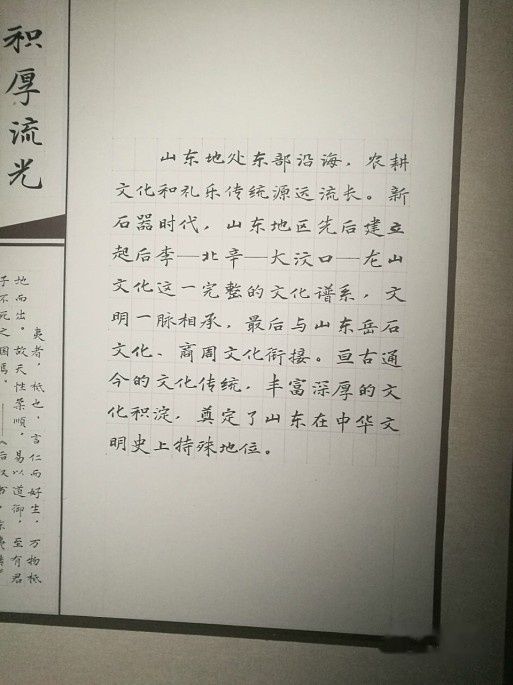 积厚流光
山东地处东部沿海，农耕
文化和礼乐传统源远流长。新
石器时代，山东地区先后建立
起后李—北辛—大汶口—龙山
文化这一完整的文化谱系，文
明一脉相承，最后与山东岳石
文化、商周文化衔接。亘古通
今的文化传统，丰富深厚的文
化积淀，奠定了山东在中华文
明史上特殊地位。
夷者，柢也，言仁而好生，万物柢
地而出。故天性柔顺，易以道御，至有君
子不死之国焉。